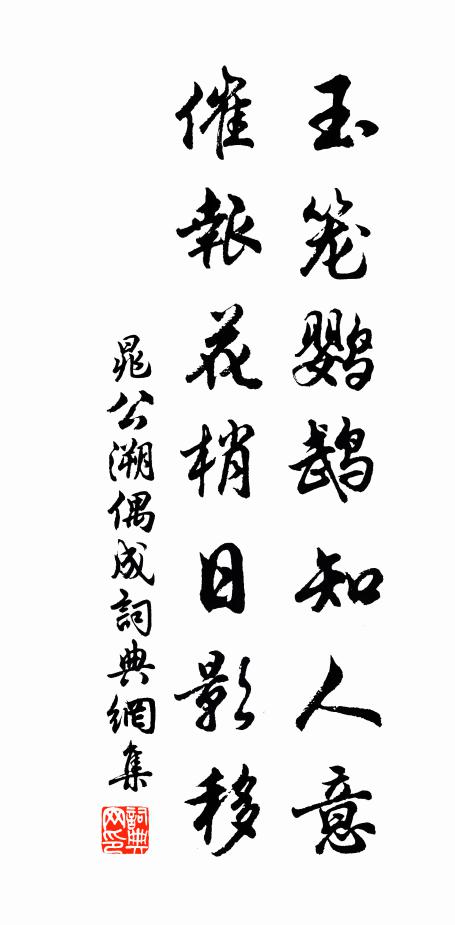 玉笼鹦鹉知人意
催報花梢日影移
晁公溯偶成詞典網集
詞典网印